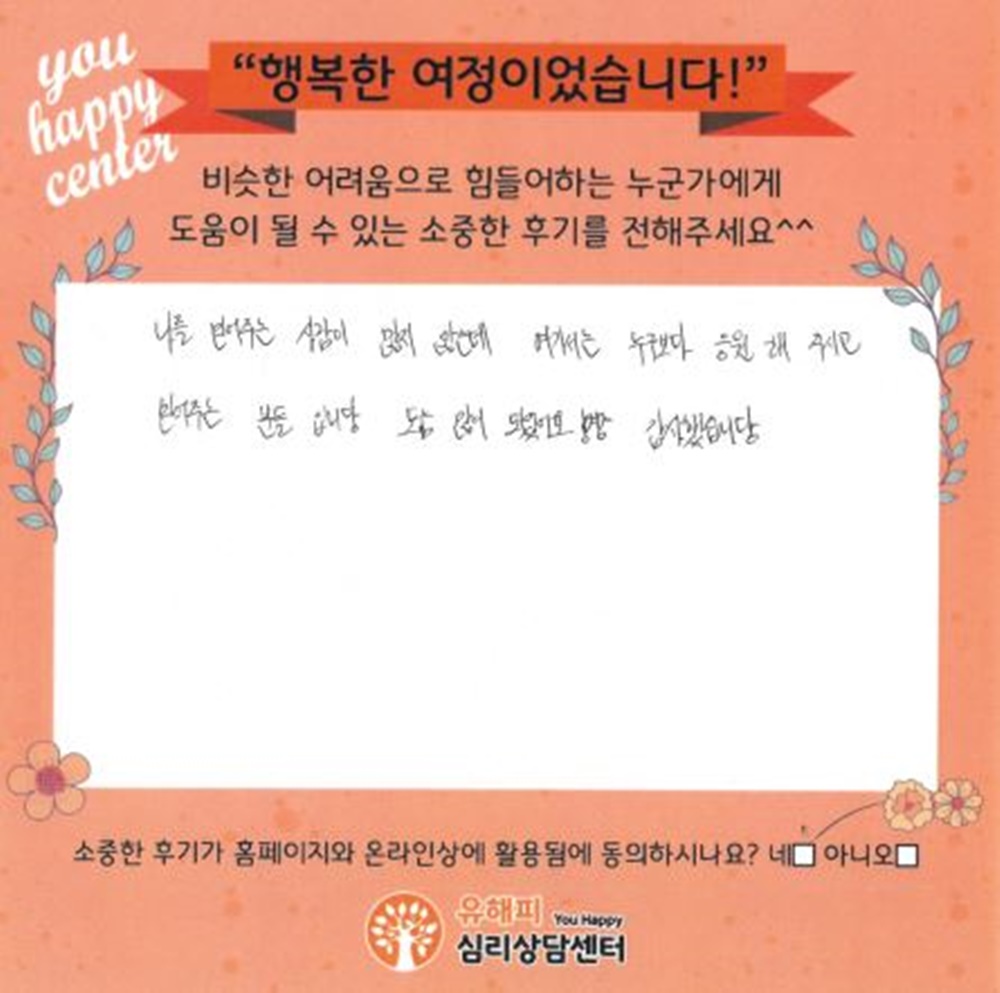 you
happy
center
“행복한 여정이었습니다!”
비슷한 어려움으로 힘들어하는 누군가에게
도움이 될 수 있는 소중한 후기를 전해주세요^^
나를 믿어주는 사람이 많지 않은데 여기서는 누구보다 응원 해 주시고
믿어주는 분들 입니당 도움 많이 되었어요 감사했습니당
소중한 후기가 홈페이지와 온라인상에 활용됨에 동의하시나요? 네□ 아니오□
유해피 You Happy
심리상담센터